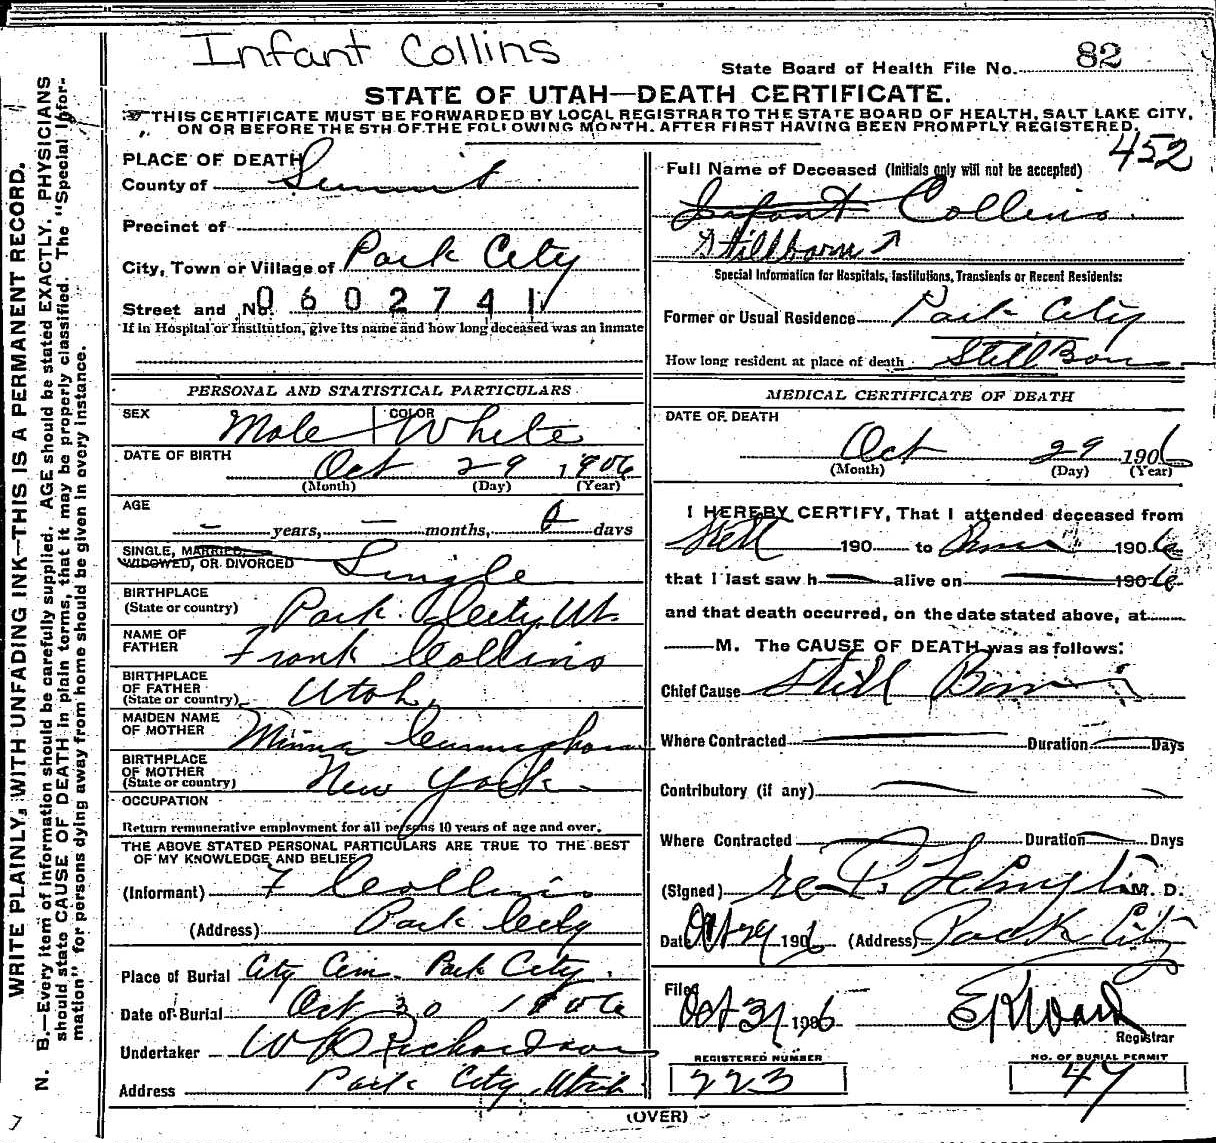 Infant Collins
State Board of Health File No. 82
STATE OF UTAH—DEATH CERTIFICATE.
THIS CERTIFICATE MUST BE FORWARDED BY LOCAL REGISTRAR TO THE STATE BOARD OF HEALTH, SALT LAKE CITY,
ON OR BEFORE THE 5TH OF THE FOLLOWING MONTH. AFTER FIRST HAVING BEEN PROMPTLY REGISTERED.
452
WRITE PLAINLY, WITH UNFADING INK—THIS IS A PERMANENT RECORD.
N. B.—Every item of information should be carefully supplied. AGE should be stated EXACTLY. PHYSICIANS
should state CAUSE OF DEATH in plain terms, that it may be properly classified. The "Special Infor-
mation" for persons dying away from home should be given in every instance.
PLACE OF DEATH
County of Summit
Precinct of
City, Town or Village of Park City
Street and No. 0602741
If in Hospital or Institution, give its name and how long deceased was an inmate
PERSONAL AND STATISTICAL PARTICULARS
SEX Male COLOR White
DATE OF BIRTH Oct 29 1906
(Month) (Day) (Year)
AGE
— years, — months, 0 days
SINGLE, MARRIED,
WIDOWED, OR DIVORCED Single
BIRTHPLACE
(State or country) Park City, Ut.
NAME OF
FATHER Frank Collins
BIRTHPLACE
OF FATHER
(State or country) Utah
MAIDEN NAME
OF MOTHER Minna Cunningham
BIRTHPLACE
OF MOTHER
(State or country) New York
OCCUPATION
Return remunerative employment for all persons 10 years of age and over.
THE ABOVE STATED PERSONAL PARTICULARS ARE TRUE TO THE BEST
OF MY KNOWLEDGE AND BELIEF
(Informant) F Collins
(Address) Park City
Place of Burial City Cem. Park City.
Date of Burial Oct 30 1906
Undertaker W D Richardson
Address Park City, Utah
Full Name of Deceased (Initials only will not be accepted)
Infant Collins
Stillborn
Special Information for Hospitals, Institutions, Transients or Recent Residents:
Former or Usual Residence Park City
How long resident at place of death Still Born
MEDICAL CERTIFICATE OF DEATH
DATE OF DEATH
Oct 29 1906
(Month) (Day) (Year)
I HEREBY CERTIFY, That I attended deceased from
Still 190 to Born 1906
that I last saw h — alive on — 1906
and that death occurred, on the date stated above, at
M. The CAUSE OF DEATH was as follows:
Chief Cause Still Born
Where Contracted — Duration — Days
Contributory (if any) —
Where Contracted — Duration — Days
(Signed) M. D.
Date Oct 29 1906 (Address) Park City
Filed Oct 31 1906 E R Ward
Registrar
REGISTERED NUMBER
223
NO. OF BURIAL PERMIT
47
(OVER)